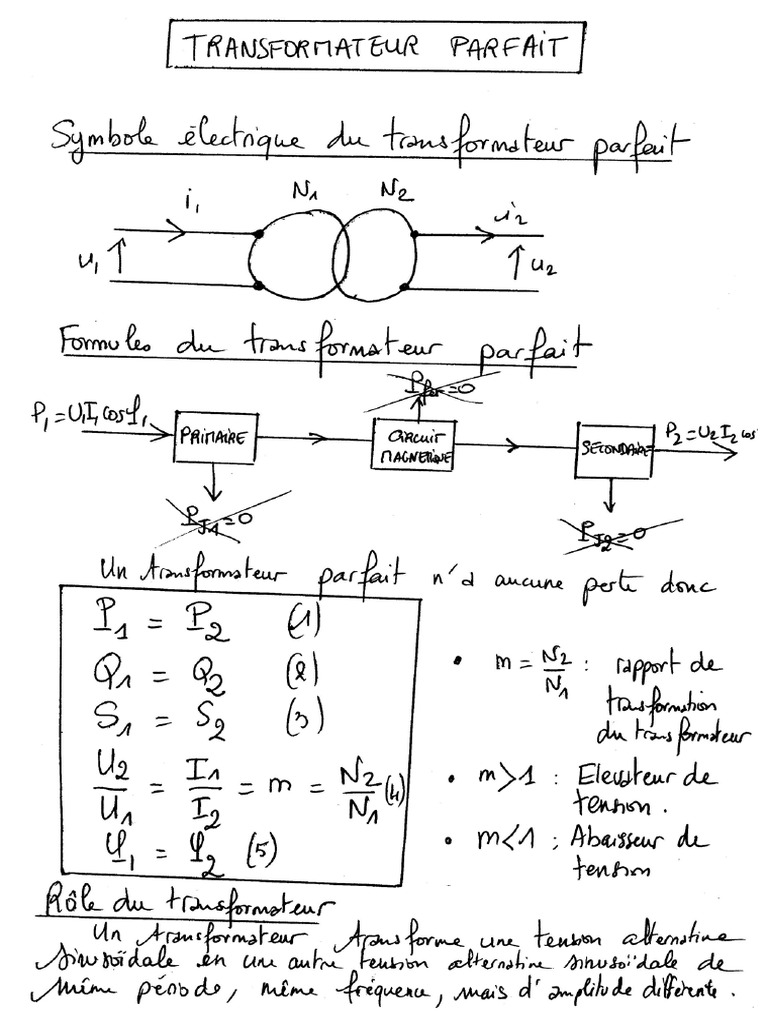 TRANSFORMATEUR PARFAIT
Symbole électrique du transformateur parfait
i1 N1 N2 i2
u1 u2
Formules du transformateur parfait
Pfer=0
P1=U1I1cosφ1 PRIMAIRE CIRCUIT MAGNETIQUE SECONDAIRE P2=U2I2cos
PJ1=0 PJ2=0
Un transformateur parfait n'a aucune perte donc
P1 = P2 (1)
Q1 = Q2 (2)
S1 = S2 (3)
U2/U1 = I1/I2 = m = N2/N1 (4)
φ1 = φ2 (5)
• m = N2/N1 : rapport de
transformation
du transformateur
• m>1 : Elevateur de
tension.
• m<1 : Abaisseur de
tension
Rôle du transformateur
Un transformateur transforme une tension alternative
sinusoïdale en une autre tension alternative sinusoïdale de
même période, même fréquence, mais d'amplitude différente.